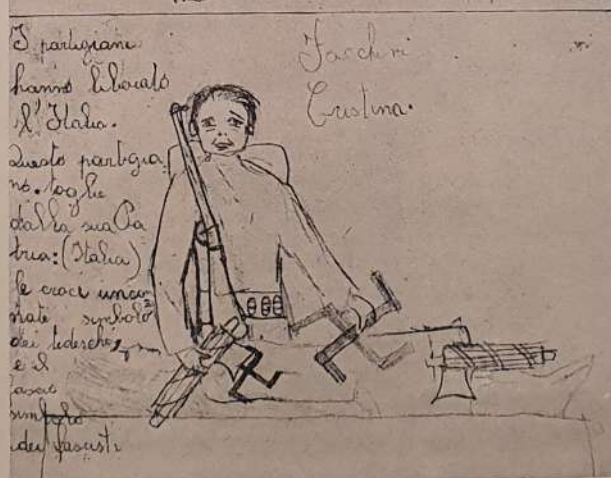 I partigiani
hanno liberato
l'Italia.
Questo partigia
no. toglie
dalla sua Pa
tria: (Italia)
le croci unci
nate simbolo
dei tedeschi
e il
fascio
simbolo
dei fascisti
Faschini
Cristina.